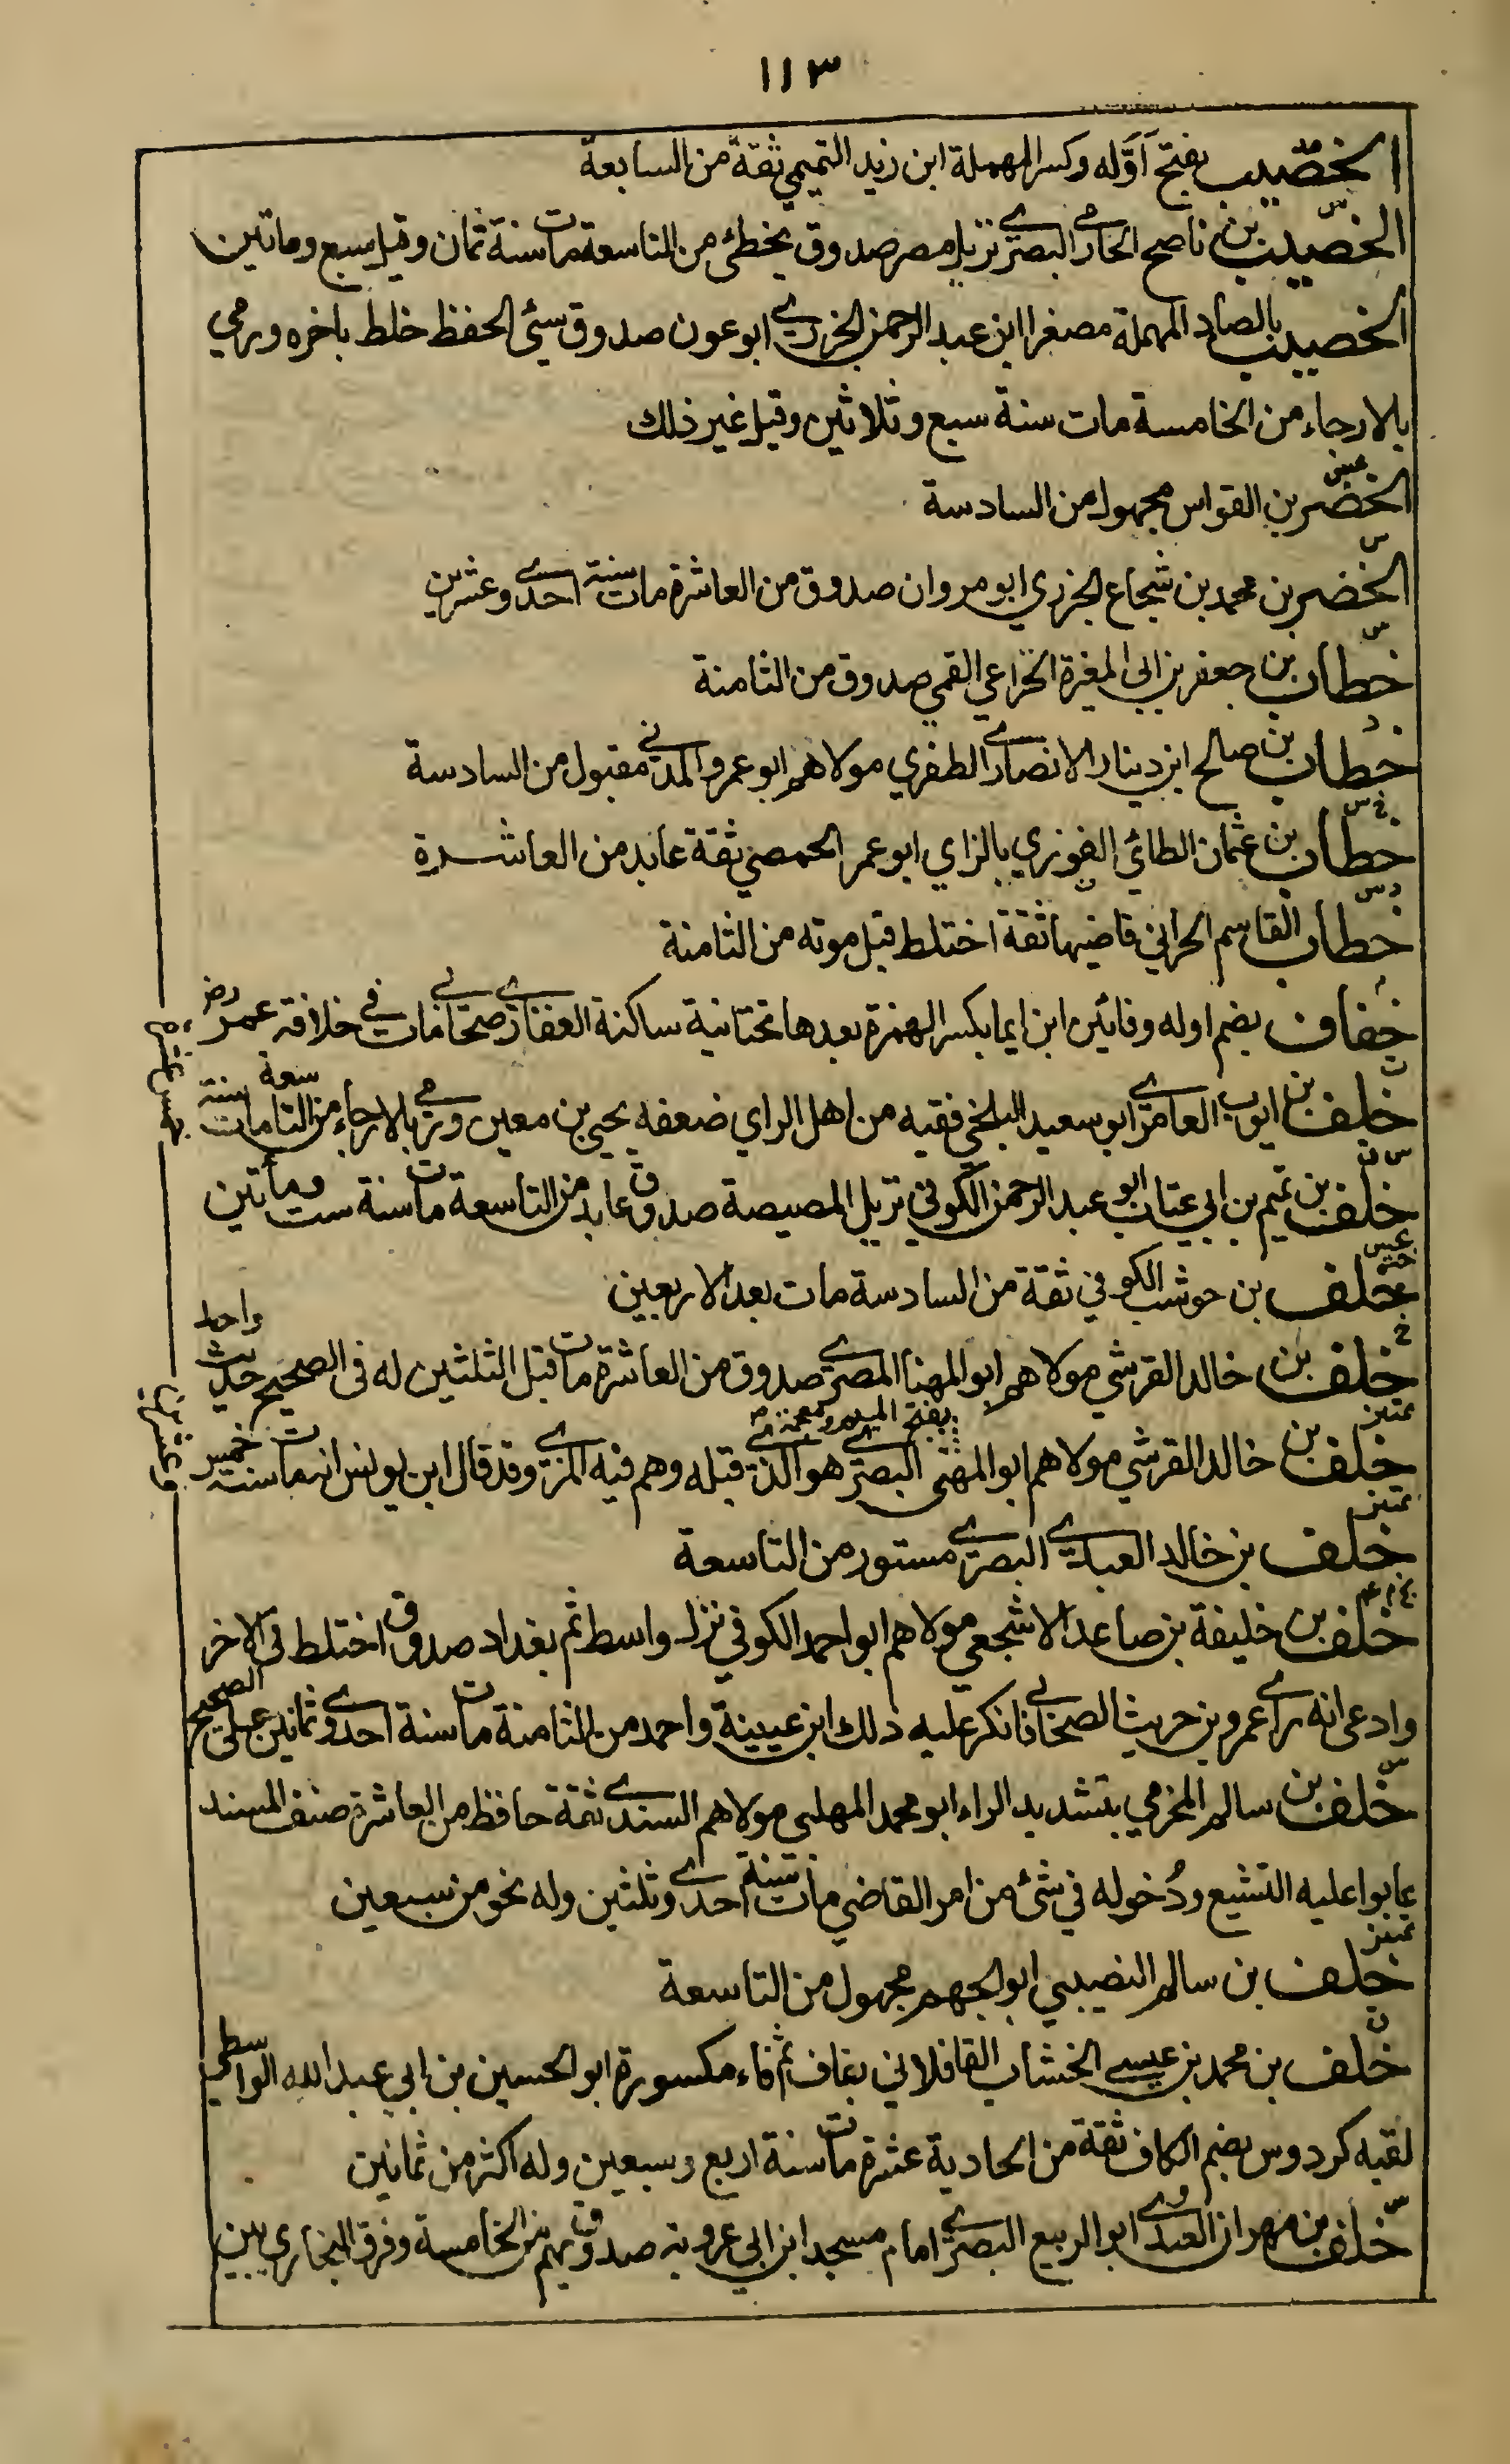 ١١٣
الخصيب بفتح اوّله وكسر المهملة ابن زيد التميمي ثقة من السابعة
الخصيب بن ناصح الحارثي البصري نزيل مصر صدوق يخطئ من التاسعة مات سنة ثمان وقيل سبع وماتين
الخصيب بالصاد المهملة مصغرا ابن عبد الرحمن الجزري ابو عون صدوق سيئ الحفظ خلط باخره ورمي
بالارجاء من الخامسة مات سنة سبع وثلاثين وقيل غير ذلك
الخضر بن القواس مجهول من السادسة
الخضر بن محمد بن شجاع الجزري ابو مروان صدوق من العاشرة مات سنة احدى وعشرين
خطاب بن جعفر بن ابي المغيرة الخزاعي القمي صدوق من الثامنة
خطاب بن صالح ابن دينار الانصاري الظفري مولاهم ابو عمرو المدني مقبول من السادسة
خطاب بن عثمان الطائي الفوزي بالزاي ابو عمر الحمصي ثقة عابد من العاشرة
خطاب القاسم الحراني قاضيها ثقة اختلط قبل موته من الثامنة
خفاف بضم اوله وفائين ابن ايما بكسر الهمزة بعدها تحتانية ساكنة الغفاري صحابي مات في خلافة عمر رض
خلف بن ايوب العامري ابو سعيد البلخي فقيه من اهل الراي ضعفه يحيى بن معين ورمي بالارجاء من التاسعة مات سنة
خلف بن تميم بن ابي عتاب ابو عبد الرحمن الكوفي نزيل المصيصة صدوق عابد من التاسعة مات سنة ست ومأتين
خلف بن حوشب الكوفي ثقة من السادسة مات بعد الاربعين
خلف بن خالد القرشي مولاهم ابو المهنا المصري صدوق من العاشرة مات قبل الثلثين له في الصحيح حديث واحد
خلف بن خالد القرشي مولاهم ابو المهنى البصري هو الذي قبله وهم فيه المزي وقد قال ابن يونس انه مات سنة خمس
خلف بن خالد العبدي البصري مستور من التاسعة
خلف بن خليفة بن صاعد الاشجعي مولاهم ابو احمد الكوفي نزل واسط ثم بغداد صدوق اختلط في الاخر
وادعى انه راى عمرو بن حريث الصحابي فانكر عليه ذلك ابن عيينة واحمد من الثامنة مات سنة احدى وثمانين على الصحيح
خلف بن سالم المخرمي بتشديد الراء ابو محمد المهلبي مولاهم السندي ثقة حافظ من العاشرة صنف المسند
عابوا عليه التشيع ودُخوله في شئ من امر القاضي مات سنة احدى وثلثين وله نحو من سبعين
خلف بن سالم النصيبي ابو الجهم مجهول من التاسعة
خلف بن محمد بن عيسى الخشاب القافلاني بقاف ثم فاء مكسورة ابو الحسين بن ابي عبد الله الواسطي
لقبه كردوس بضم الكاف ثقة من الحادية عشرة مات سنة اربع وسبعين وله اكثر من ثمانين
خلف بن مهران العدوي ابو الربيع البصري امام مسجد ابن ابي عروبة صدوق يهم من الخامسة وفرق البخاري بين